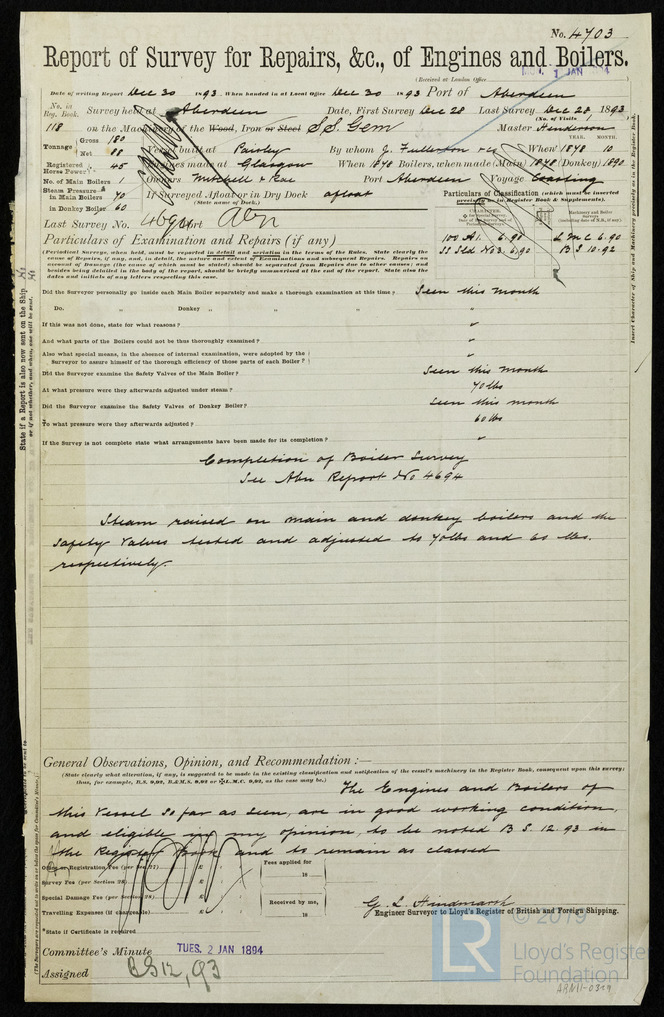 No. 4703
Report of Survey for Repairs, &c., of Engines and Boilers.
(Received at London Office
MON. 1 JAN 1894
Date of writing Report Dec 30 1893. When handed in at Local Office Dec 30 1893 Port of Aberdeen
No. in Reg. Book. Survey held at Aberdeen Date, First Survey Dec 28 Last Survey Dec 28 1893
(No. of Visits 1)
118 on the Machinery of the Wood, Iron or Steel S.S. Gem Master Henderson
Tonnage Gross 180
Net 88 Vessel built at Paisley By whom J. Fullerton & Co When 1878 10
YEAR. MONTH.
Registered Horse Power 45 Engines made at Glasgow When 1878 Boilers, when made (Main) 1878 (Donkey) 1890
No. of Main Boilers 1 Owners Mitchell & Rae Port Aberdeen Voyage Coasting
Steam Pressure in Main Boilers 70 If Surveyed Afloat or in Dry Dock afloat
(State name of Dock.)
in Donkey Boiler 60
Particulars of Classification (which must be inserted precisely as in Register Book & Supplements).
Last Survey No. 4694 Port Abn
100 A1. 6.90 L M C 6.90
SS Sld No 3. 6.90 B S 10.92
Particulars of Examination and Repairs (if any)
(Periodical) Surveys, when held, must be reported in detail and seriatim in the terms of the Rules. State clearly the cause of Repairs, if any, and, in detail, the nature and extent of Examinations and subsequent Repairs. Repairs on account of Damage (the cause of which must be stated) should be separated from Repairs due to other causes; and besides being detailed in the body of the report, should be briefly summarised at the end of the report. State also the dates and initials of any letters respecting this case.
Did the Surveyor personally go inside each Main Boiler separately and make a thorough examination at this time? Seen this month
Do. „ Donkey „ „ „ „
If this was not done, state for what reasons? „
And what parts of the Boilers could not be thus thoroughly examined? „
Also what special means, in the absence of internal examination, were adopted by the Surveyor to assure himself of the thorough efficiency of those parts of each Boiler? „
Did the Surveyor examine the Safety Valves of the Main Boiler? Seen this month
At what pressure were they afterwards adjusted under steam? 70 lbs
Did the Surveyor examine the Safety Valves of Donkey Boiler? Seen this month
To what pressure were they afterwards adjusted? 60 lbs
If the Survey is not complete state what arrangements have been made for its completion? „
Completion of Boiler Survey
See Abn Report No 4694
Steam raised on main and donkey boilers and the
Safety Valves tested and adjusted to 70 lbs and 60 lbs.
respectively.
General Observations, Opinion, and Recommendation:—
(State clearly what alteration, if any, is suggested to be made in the existing classification and notification of the vessel's machinery in the Register Book, consequent upon this survey; thus, for example, B.S. 9,92, B.&M.S. 9,92 or ✠L.M.C. 9,92, as the case may be.)
The Engines and Boilers of
this Vessel so far as seen, are in good working condition,
and eligible in my opinion, to be noted B S. 12.93 in
the Register Book and to remain as classed
Office or Registration Fee (per Sec. 27) £ Fees applied for
Survey Fee (per Section 28) £ 18
Special Damage Fee (per Section 28) £ Received by me,
Travelling Expenses (if chargeable) £ 18
G. L. Hindmarsh
Engineer Surveyor to Lloyd's Register of British and Foreign Shipping.
*State if Certificate is required
Committee's Minute TUES. 2 JAN 1894
Assigned BS 12,93
State if a Report is also now sent on the Ship No
or if not, whether, and when, one will be sent.
Insert Character of Ship and Machinery precisely as in the Register Book.
(The Surveyors are requested not to write on or below the space for Committee's Minute.)
LR
© 2019
Lloyd's Register
Foundation
ARN11-0329